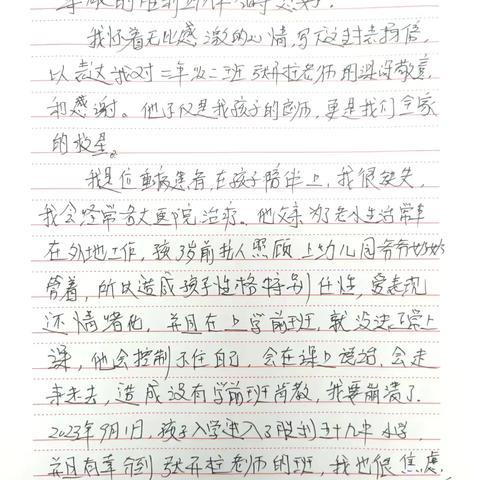 尊敬的胜利五十九中领导:
我怀着无比感激的心情,写这封表扬信,
以表达我对二年级二班张开拉老师的深深敬意
和感谢。他不仅是我孩子的良师,更是我们全家
的救星。
我是位重病患者,在孩子陪伴上,我很缺失,
我会经常各大医院治疗。他父亲为了老小生活常年
在外地工作,孩3岁前找人照顾上幼儿园爷爷奶奶
管着,所以造成孩子性格特别任性,爱表现
还情绪化,并且在上学前班,就没法正常上
课,他会控制不住自己,会在课上说话,会走
来走去,造成没有学前班肯教,我要崩溃了.
2023年9月1日,孩子入学进入了胜利五十九中小学
并且有幸分到张开拉老师的班,我也很焦虑,